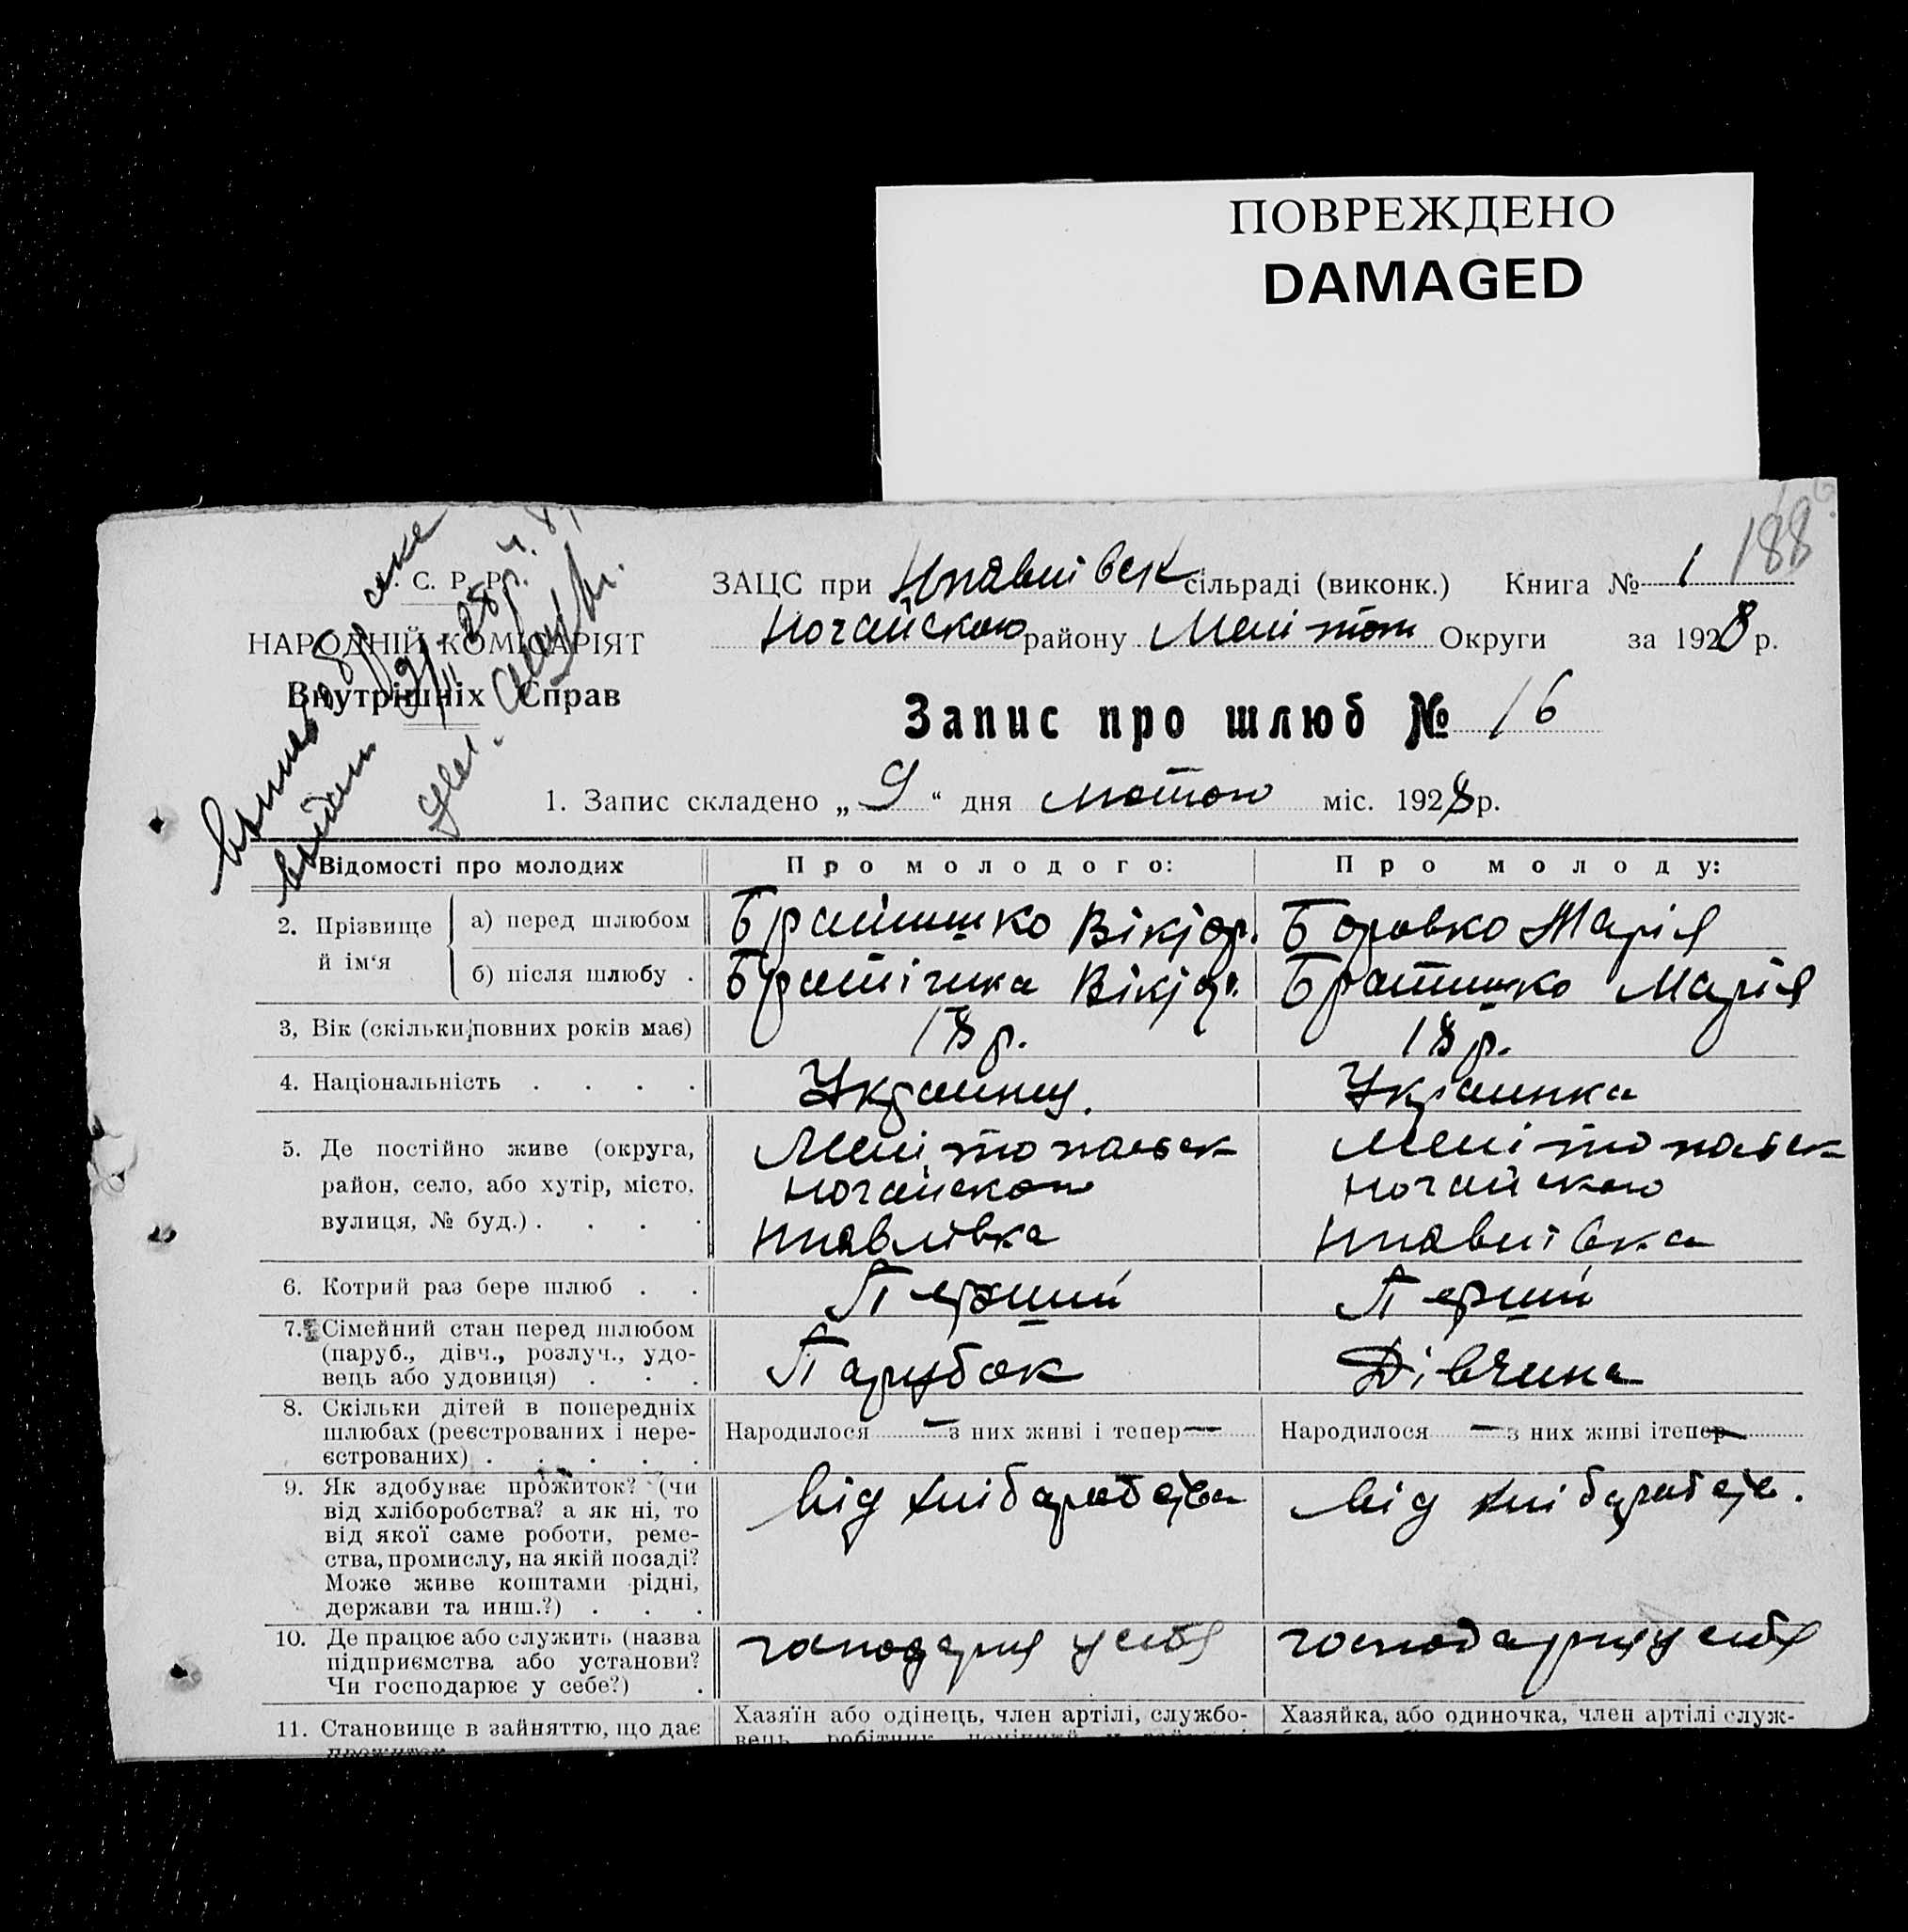 ПОВРЕЖДЕНО
DAMAGED
188
С. Р. Р.
НАРОДНІЙ КОМІСАРІЯТ
Внутрішніх Справ
ЗАЦС при сільраді (виконк.) Книга № 1
Ногайского району Мелітоп Округи за 1928 р.
Запис про шлюб № 16
1. Запис складено „ 9 “ дня лютого міс. 1928 р.
Відомості про молодих Про молодого: Про молоду:
2. Прізвище й ім‘я
а) перед шлюбом Братишко Віктор. Боровко Марія
б) після шлюбу . Братішка Віктор. Братишко Марія
3, Вік (скільки повних років має) 18 р. 18 р.
4. Національність . . . . Украинец. Украинка
5. Де постійно живе (округа, Мелітопольск Мелітопольск
район, село, або хутір, місто, Ногайского Ногайского
вулиця, № буд.) . . . .
6. Котрий раз бере шлюб . . Перший Перший
7. Сімейний стан перед шлюбом
(паруб., дівч., розлуч., удо- Парубок Дівчина
вець або удовиця) . . .
8. Скільки дітей в попередніх
шлюбах (реєстрованих і нере- Народилося — з них живі і тепер — Народилося — з них живі ітепер —
єстрованих) . . . . .
9. Як здобуває прожиток? (чи від хліборобства від хлібороботв.
від хліборобства? а як ні, то
від якої саме роботи, реме-
ства, промислу, на якій посаді?
Може живе коштами рідні,
держави та инш.?) . . .
10. Де працює або служить (назва господарня у себя господарня у себя
підприємства або установи?
Чи господарює у себе?) .
11. Становище в зайняттю, що дає Хазяїн або одінець, член артілі, службо- Хазяйка, або одиночка, член артілі служ-
прожиток